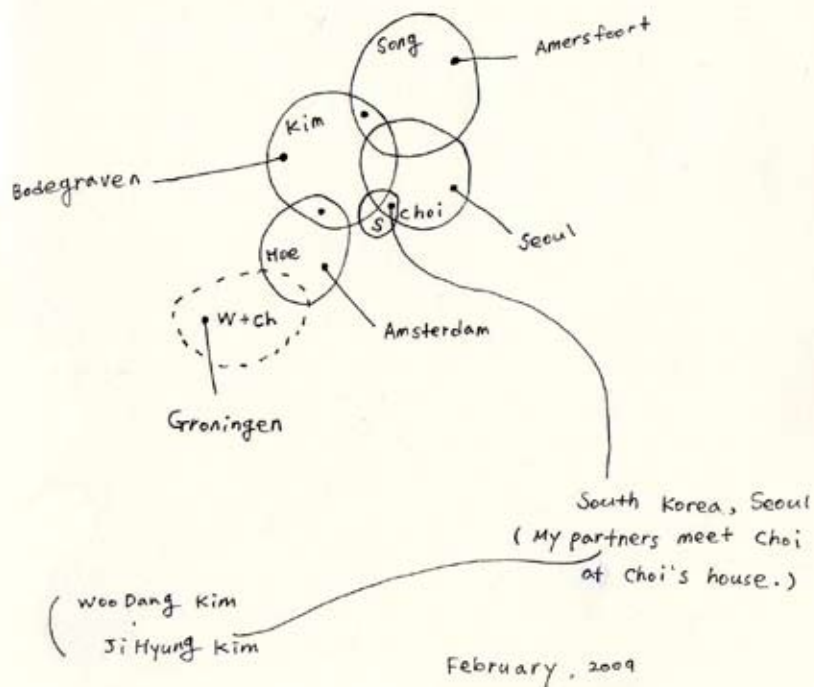 Song
Amersfoort
Kim
Bodegraven
S
choi
Seoul
Hoe
W+Ch
Amsterdam
Groningen
South Korea, Seoul
(My partners meet Choi
at Choi's house.)
(Woo Dang Kim
Ji Hyung Kim
February, 2009